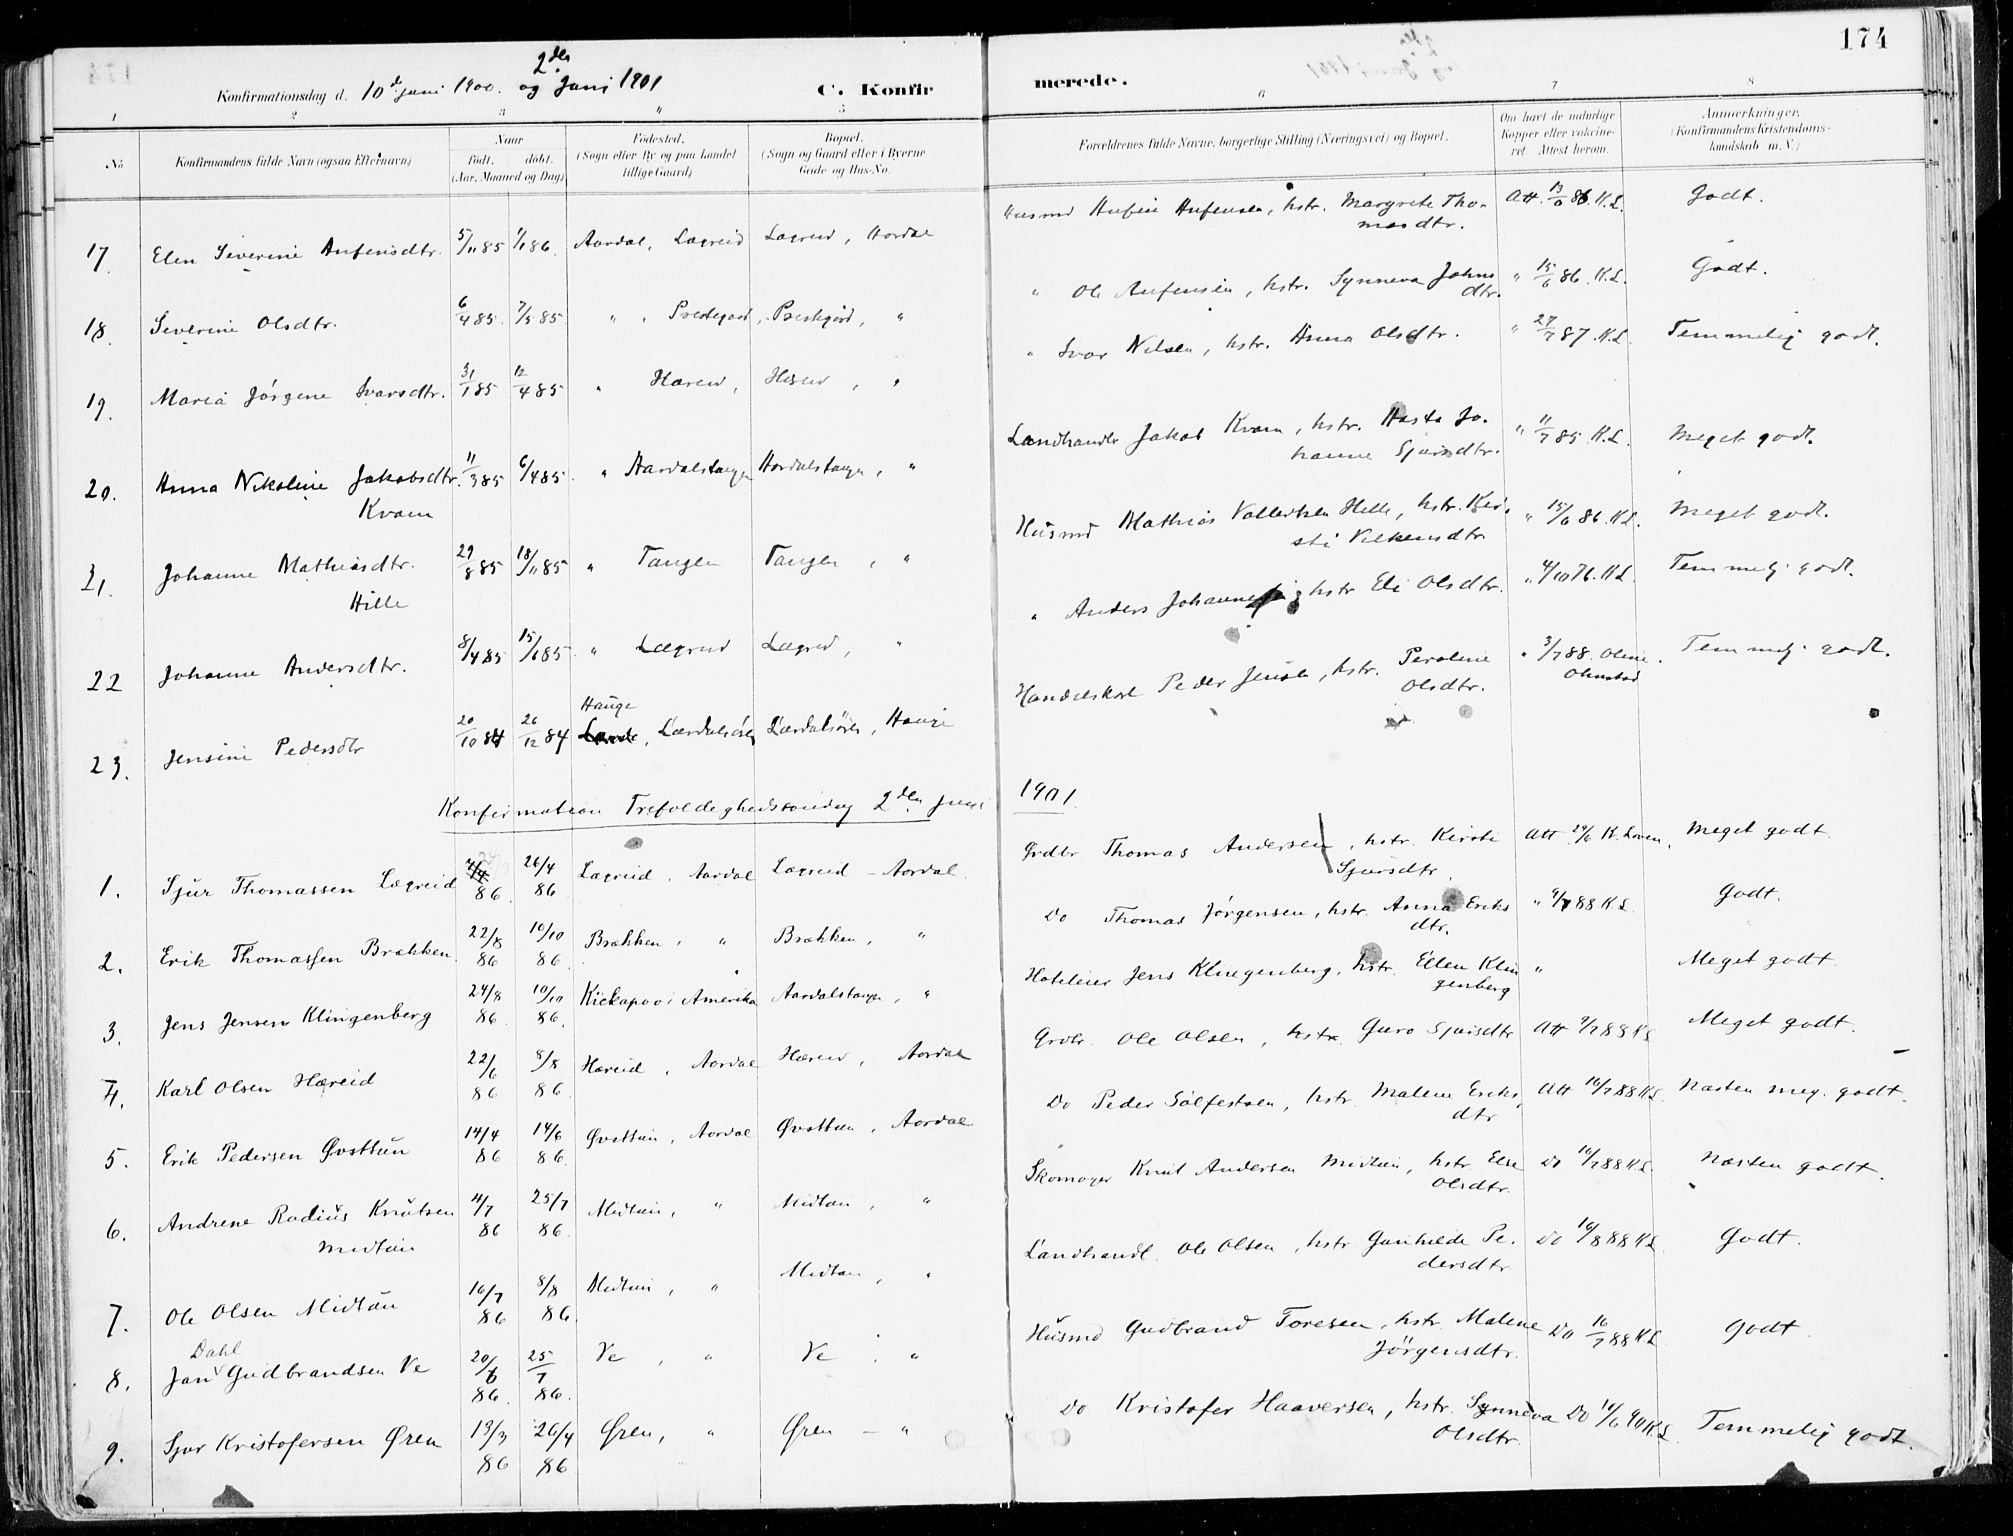 174
Konfirmationsdag d. 10de juni 1900. og 2den Juni 1901
C. Konfirmerede.
1 2 3 4 5 6 7 8
No
Konfirmandens fulde Navn (ogsaa Efternavn)
Naar
født. døbt.
(Aar, Maaned og Dag)
Fødested.
(Sogn eller By og paa Landet
tillige Gaard)
Bopæl.
(Sogn og Gaard eller i Byerne
Gade og Hus-No.
Forældrenes fulde Navne, borgerlige Stilling (Næringsvei) og Bopæl.
Om havt de naturlige
Kopper eller vakcine-
ret. Attest herom.
Anmærkninger.
(Konfirmandens Kristendoms-
kundskab m. V.)
17. Elen Severine Anfensdtr. 5/11 85 1/1 86. Aardal, Lægreid Lægreid, Aardal Husmd Anfin Anfensen, hstr. Margrete Tho-
masdtr. Att. 13/6 86. K.L. Godt.
18. Severine Olsdtr. 6/4 85. 7/5 85. " , Prestegaard, Prestegård, " " Ole Anfensen, hstr. Synneva Johns
dtr. " 15/6 86. K.L. Godt.
19. Maria Jørgine Ivarsdtr. 31/1 85 12/4 85 " Hæreid, Hæreid, " " Ivar Nilsen, hstr. Anna Olsdtr. " 27/7 87. K.L. Temmelig godt.
20. Anna Nikoline Jakobsdtr. 11/3 85 6/4 85. " Aardalstangen Aardalstangen, " Landhandler Jakob Kvam, hstr. Aasta Jo-
hanne Sjursdtr. " 11/7 85 K.L. Meget godt.
Kvam
21. Johanne Mathiasdtr. 29/8 85 18/11 85 " Tangen Tangen, " Husmd Mathias Hille, hstr. Kir-
sti " 15/6 86. K.L. Meget godt.
Hille
22 Johanne Andersdtr. 8/4 85 15/6 85. " Lægreid Lægreid, " " Anders Johannessen, hstr Eli Olsdtr. " 4/10 76. K.L. Temmelig godt.
23. Jensine Pedersdtr 20/10 84 26/12 84 Hauge, Lærdalsøren Lærdalsøren, Hauge Handelskarl Peder Jensen, hstr. Peroline
Olsdtr. " 3/7 88. Oline
Olmstad Temmelig godt.
Konfirmation Trefoldighedssøndag 2den Juni 1901.
1. Sjur Thomassen Lægreid 86. 26/4 86 Lægreid, Aardal Lægreid - Aardal. Grdbr Thomas Andersen, hstr. Kirsti
Sjursdtr. Att 29/6 K. Loven. Meget godt.
2. Erik Thomassen Brækken. 22/8 86 10/10 86. Brækken, " Brækken, " Do Thomas Jørgensen, hstr. Anna Eriks
dtr. " 9/7 88 K.L. Godt.
3. Jens Jensen Klingenberg 24/8 86. 10/10 86. Kickapoo i Amerika Aardalstangen, " Hoteleier Jens Klingenberg, hstr. Ellen Klin
genberg " Meget godt
4. Karl Olsen Hæreid 22/6 86 8/8 86. Hæreid, Aardal Hæreid, Aardal Grdbr. Ole Olsen, hstr. Guro Sjursdtr Att 9/7 88 K.L. Meget godt.
5. Erik Pedersen Øvsttun 14/4 86 14/6 86. Øvsttun, Aardal Øvsttun, Aardal Do Peder Sølfestsen, hstr. Malene Eriks
dtr Att 16/7 88 K.L. Næsten meg. godt.
6. Andrene Radius Knutsen 4/7 86 25/7 86. Midtun, " Midtun, " Skomager Knut Andersen Midtun, hstr. Else
Olsdtr. Do 16/7 88 K.L. Næsten godt.
Midtun
7. Ole Olsen Midtun 16/7 86 8/8 86. Midtun, " Midtun, " Landhandl. Ole Olsen, hstr Gunhilde Pe-
dersdtr Do 16/8 88 K.L. Godt.
8. Jan Dahl Gudbrandsen Ve 20/6 86. 25/7 86. Ve, " Ve, " Husmd Gudbrand Toresen, hstr. Malene
Jörgensdtr. Do 16/7 88 K.L. Godt.
9. Sjur Kristofersen Øren 13/3 86 26/4 86 Øren, " Øren - " Do Kristofer Haaversen, hstr. Synneva
Olsdtr. Do 11/6 90 K.L. Temmelig godt.